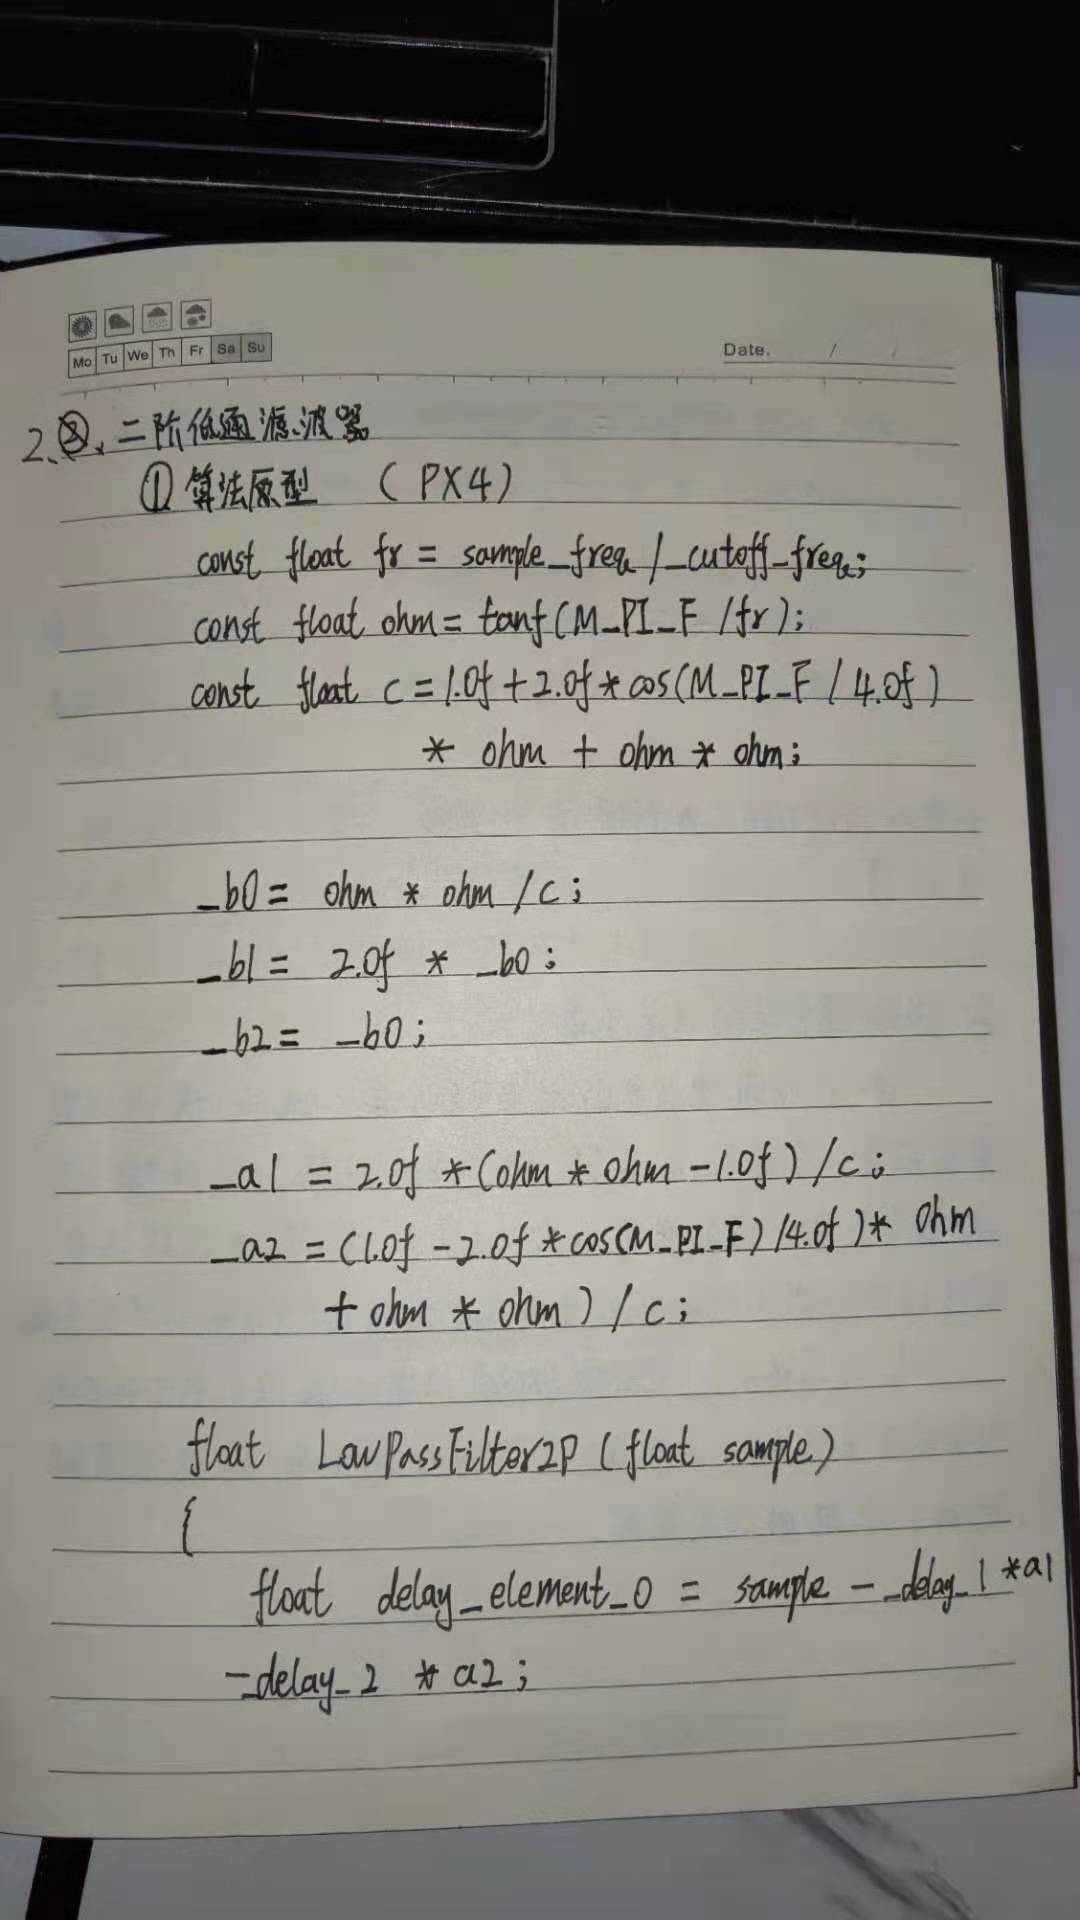 Mo Tu We Th Fr Sa Su
Date. / /
2、③、二阶低通滤波器
① 算法原型 (PX4)
const float fr = sample_freq / _cutoff_freq;
const float ohm = tanf(M_PI_F /fr);
const float c = 1.0f + 2.0f * cos(M_PI_F / 4.0f)
* ohm + ohm * ohm;
_b0 = ohm * ohm / c;
_b1 = 2.0f * _b0;
_b2 = _b0;
_a1 = 2.0f * (ohm * ohm - 1.0f) / c;
_a2 = (1.0f - 2.0f * cos(M_PI_F) / 4.0f) * ohm
+ ohm * ohm) / c;
float LowPassFilter2P (float sample)
{
float delay_element_0 = sample - _delay_1 * a1
- _delay_2 * a2;